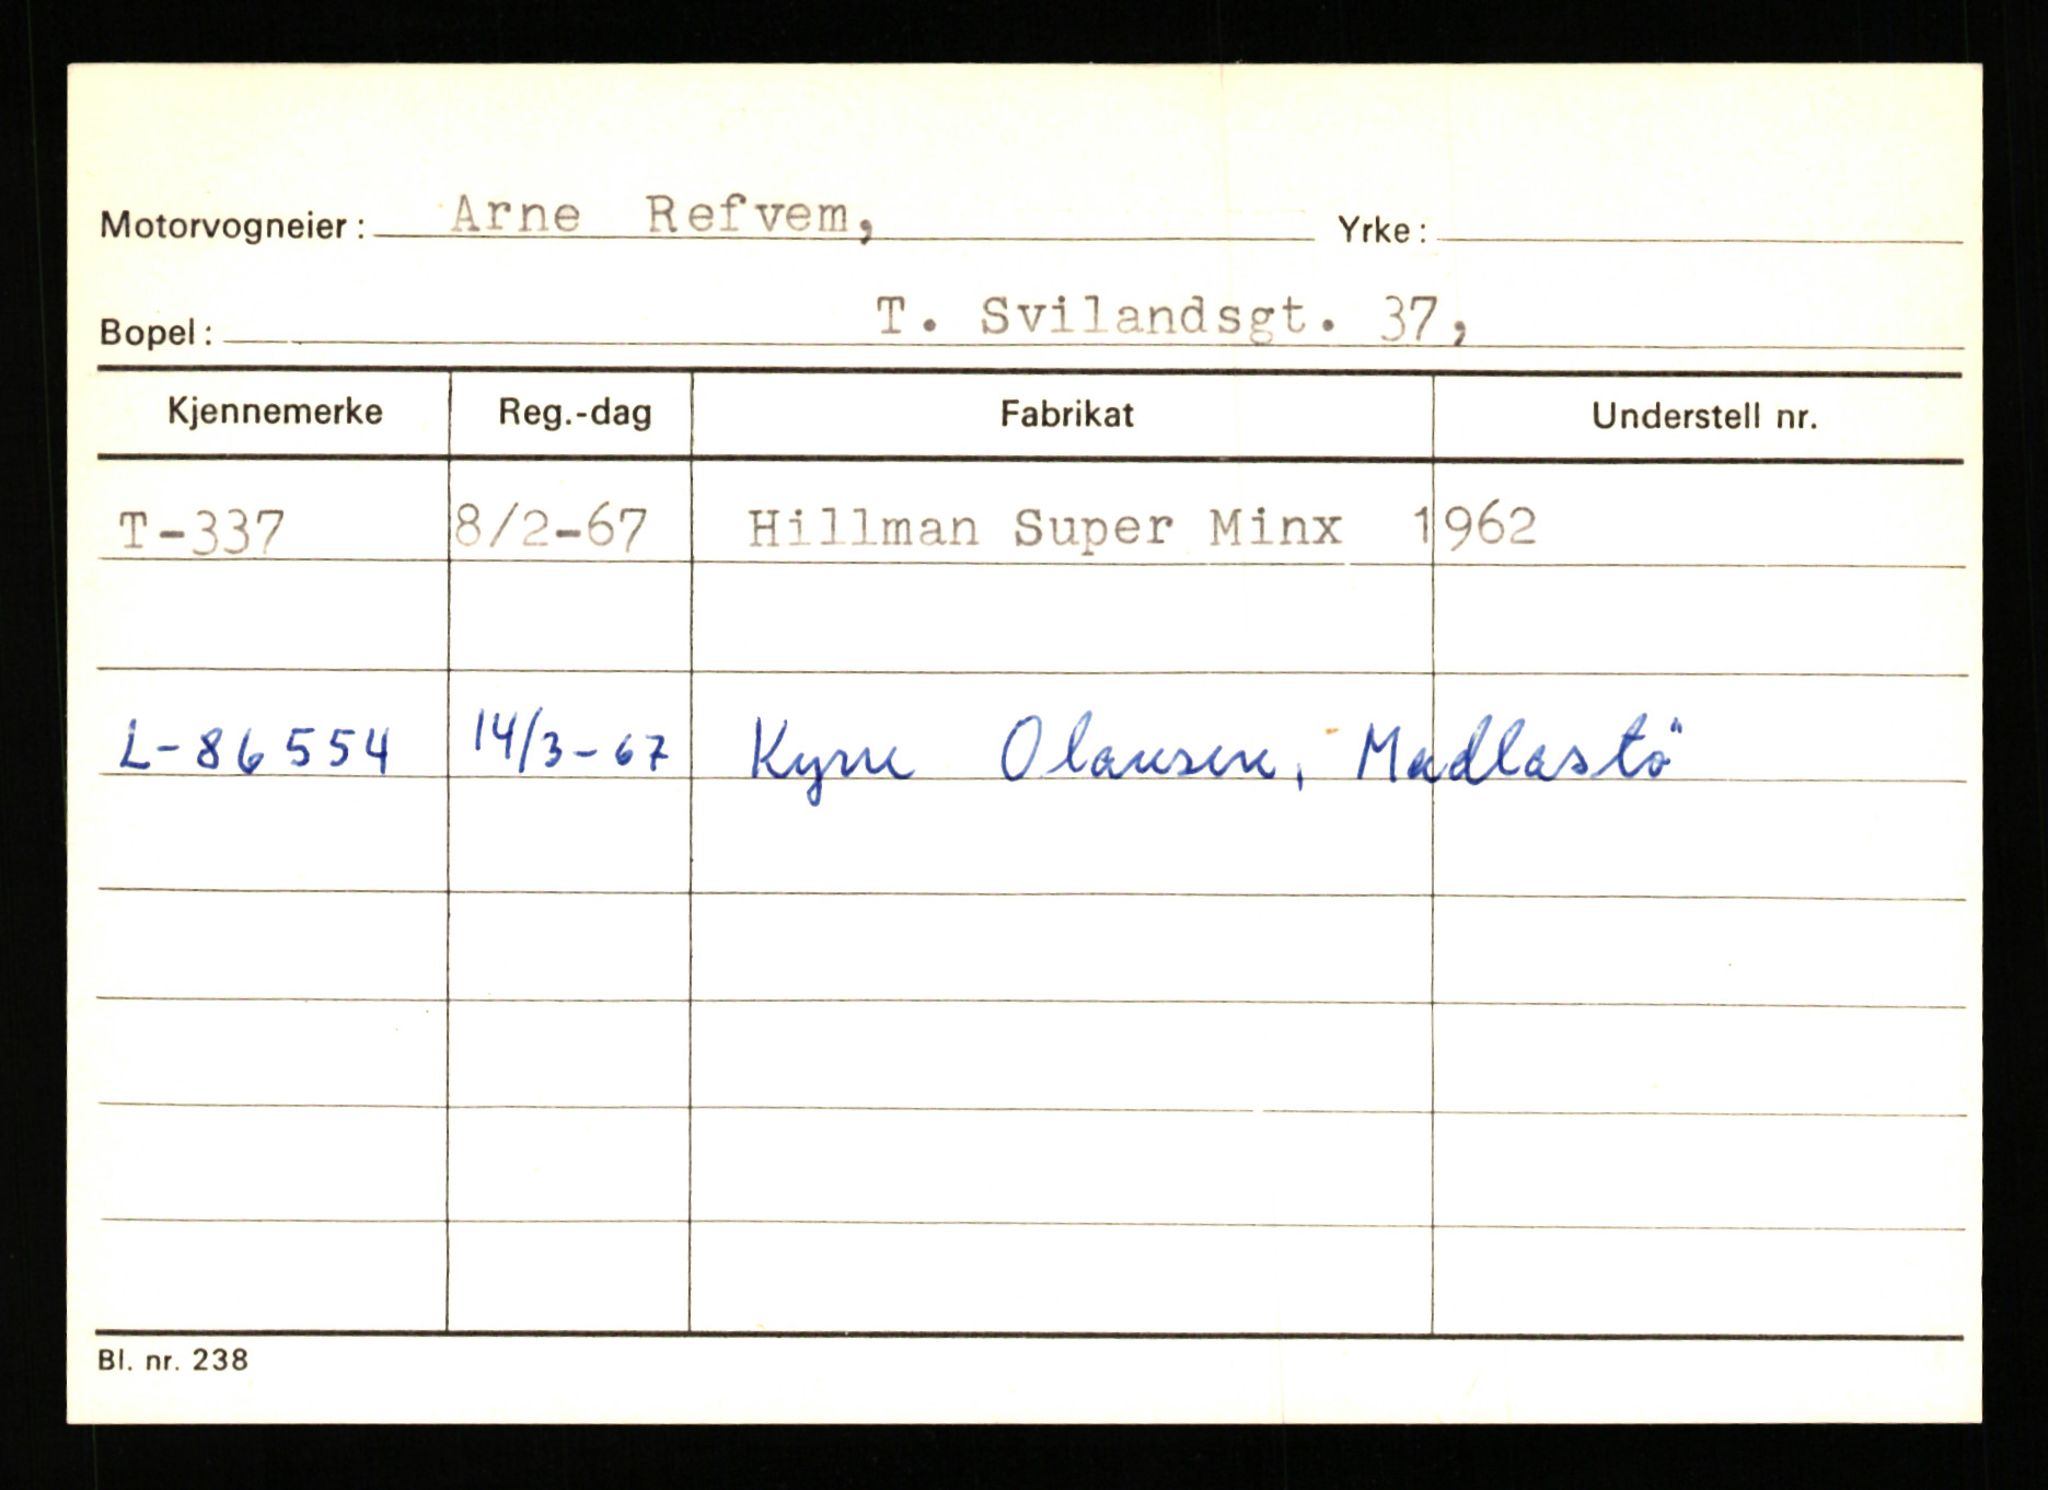 Motorvogneier: Arne Refvem, Yrke:
Bopel: T. Svilandsgt. 37,
Kjennemerke Reg.-dag Fabrikat Understell nr.
T-337 8/2-67 Hillman Super Minx 1962
L-86554 14/3-67 Kyrre Olausen, Madlastö
Bl. nr. 238